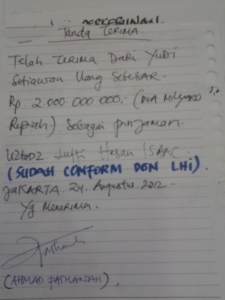 Tanda Terima
Telah Terima Dari Yudi
Setiawan Uang Sebesar
Rp. 2.000.000.000,- (Dua Milyard
Rupiah) Sebagai pinjaman
Ustadz Lutfi Hasan ISAAC
(SUDAH CONFORM DGN LHI).
JAKARTA 24 Agustus 2012
Yg Menerima.
(AHMAD FATHANAH)